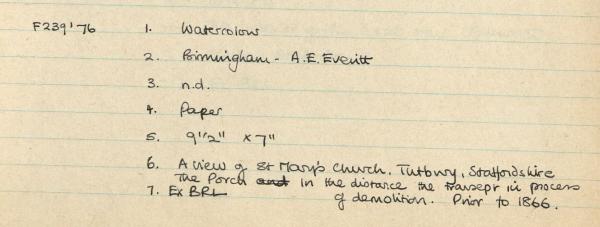 F239'76 1. Watercolour
2. Birmingham - A.E. Everitt
3. n.d.
4. Paper
5. 9 1/2" x 7"
6. A view of St Mary's Church, Tutbury, Staffordshire
The Porch and in the distance the transept in process
of demolition. Prior to 1866.
7. Ex BRL